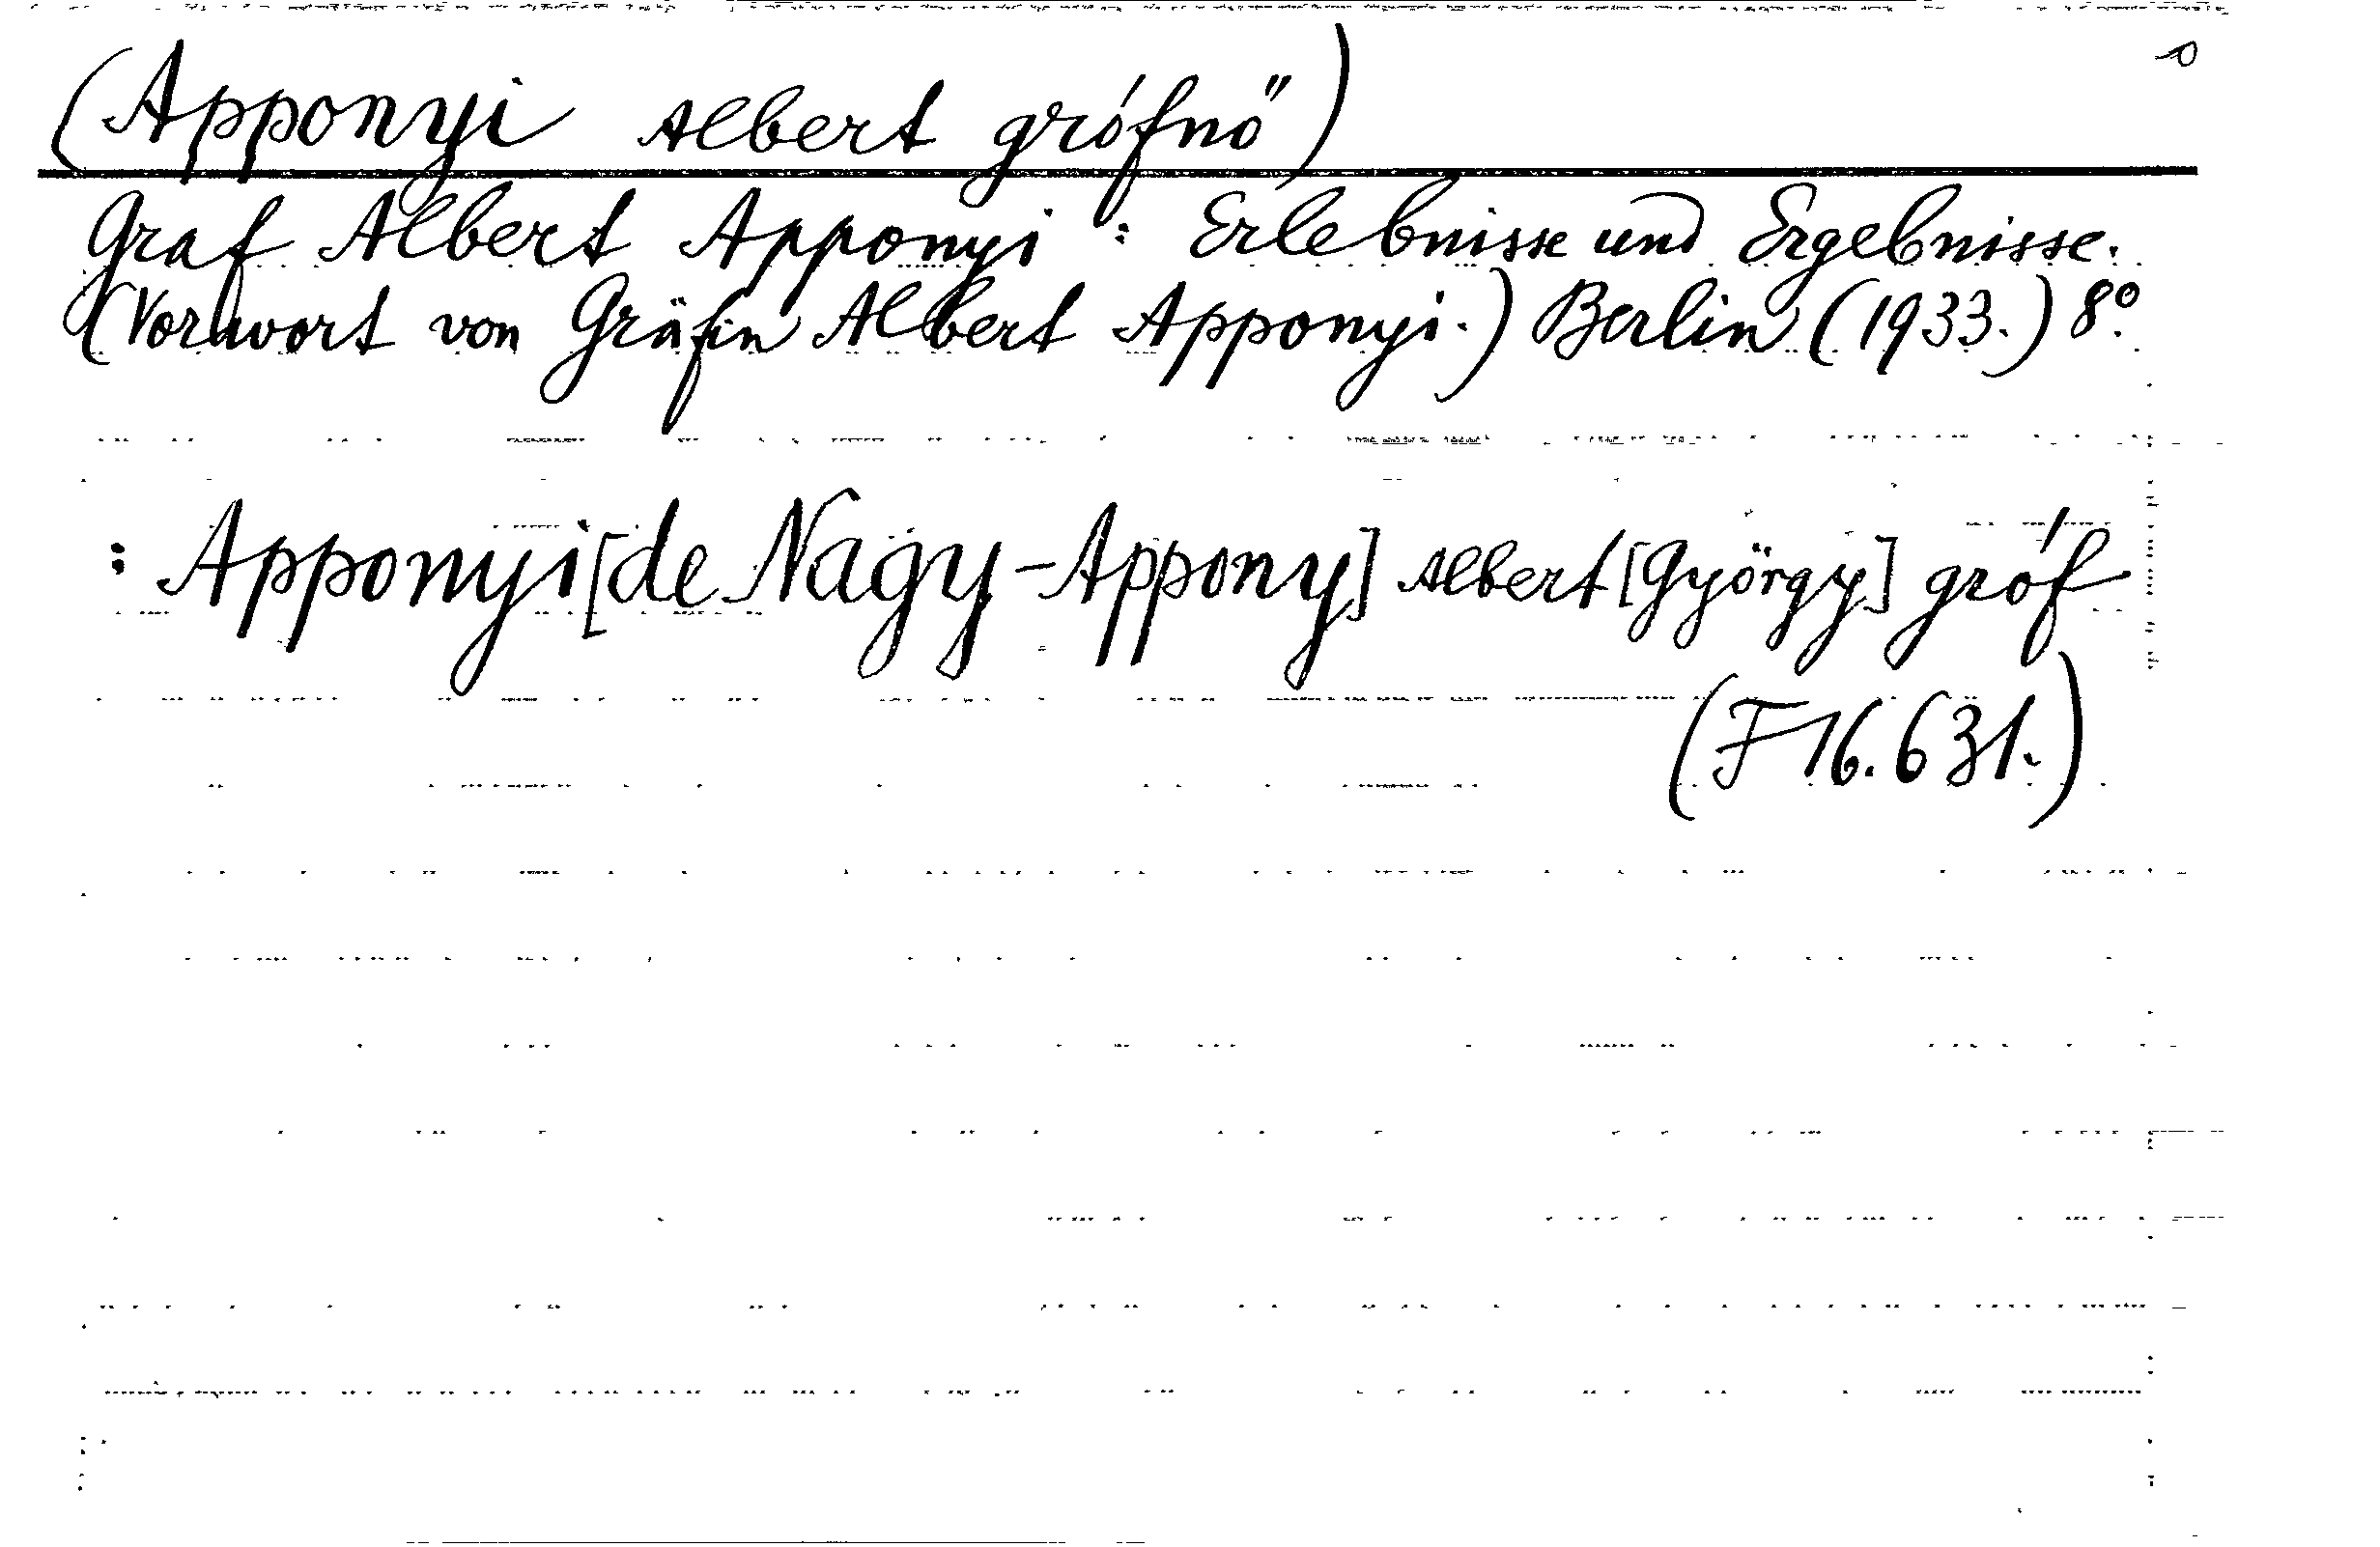 (Apponyi Albert grófnő)
Graf Albert Apponyi : Erlebnisse und Ergebnisse.
(Vorwort von Gräfin Albert Apponyi.) Berlin (1933.) 8°.
: Apponyi [de Nagy-Appony] Albert [György] gróf
(F 16.631.)